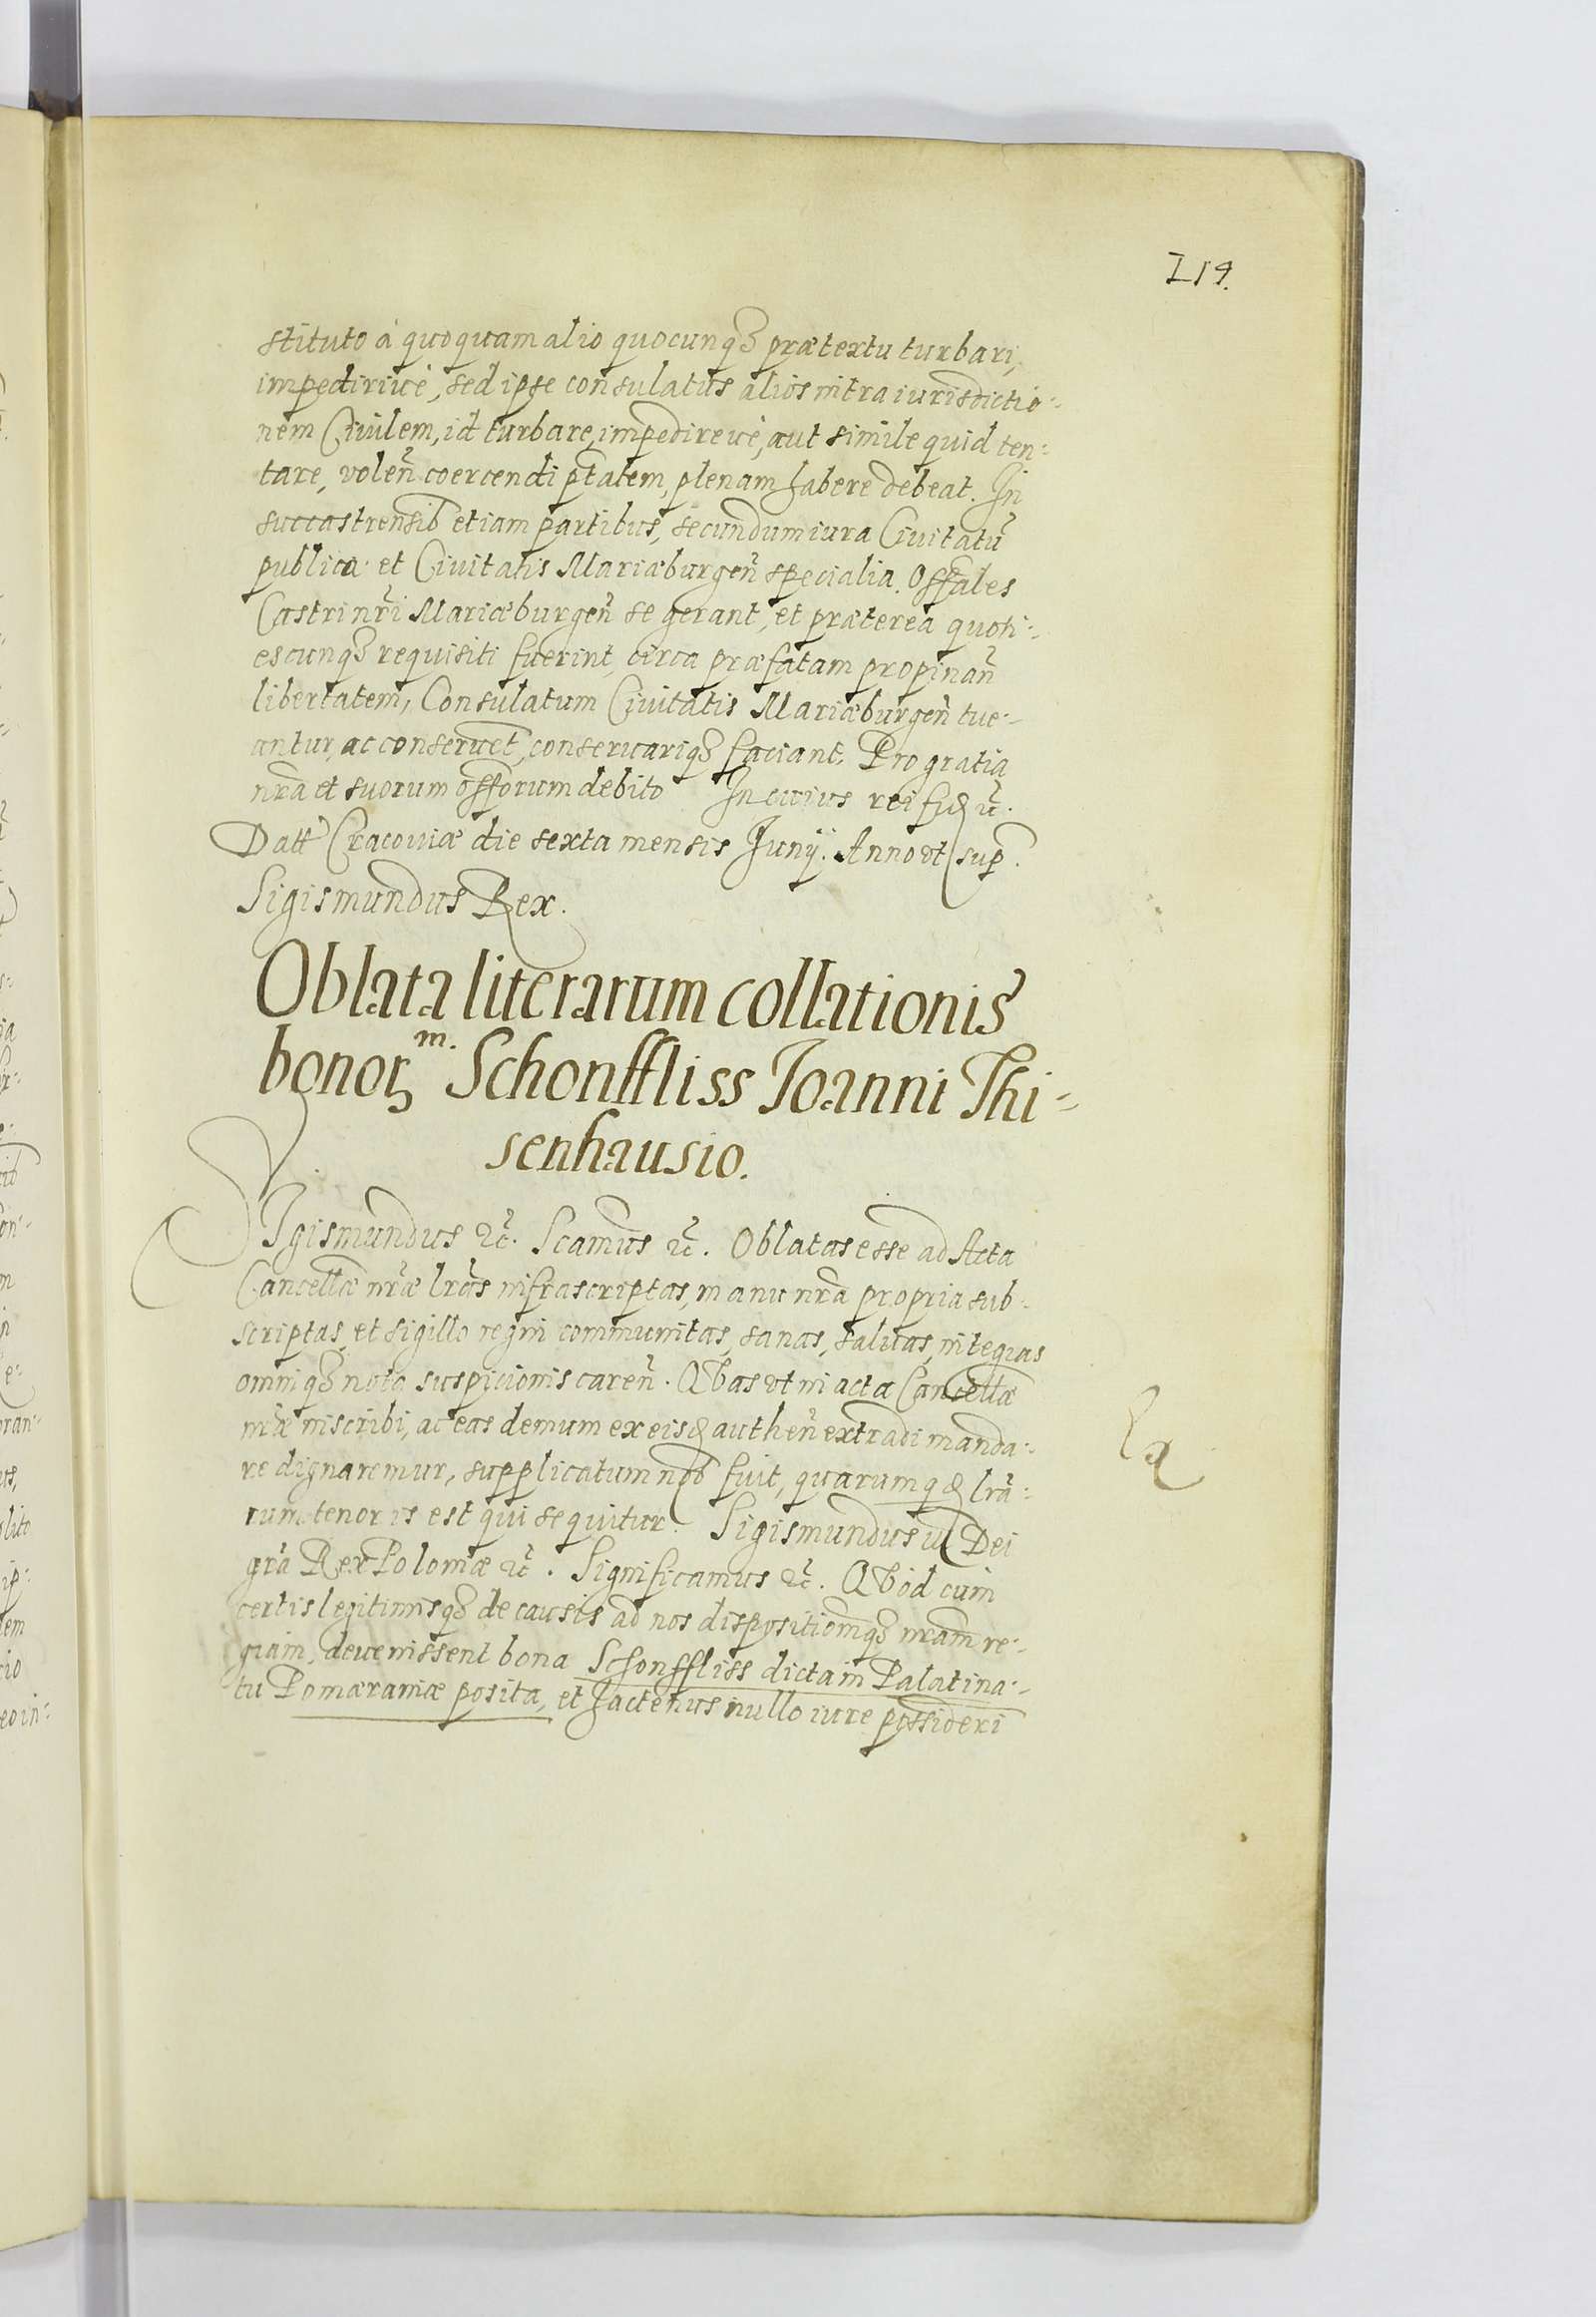 219.
stituto à quoquam alio quocunqȝ prætextu turbari,
impediriue, sed ipse consulatus alios intra iurisdictio-
nem Ciuilem, id turbare, impedireue, aut simile quid ten-
tare, volen̄ coercendi ptatem, plenam habere debeat. In
succastrensib etiam partibus, secundum iura Ciuitatū
publica et Ciuitatis Mariæburgen̄ specialia. Offales
Castri nr̄i Mariæburgen̄ se gerant, et præterea quoti-
escunqȝ requisiti fuerint, circa præfatam propinan̄
libertatem, Consulatum Ciuitatis Mariæburgen̄ tue-
antur, ac conseruet, conseruariqȝ faciant. Pro gratia
nr̄a et suorum offorum debito In cuius rei fid ꝛc̄.
Datt Cracouiæ die sexta mensis Iunij. Anno vt sup.
Sigismundus Rex.
Oblata literarum collationis
bonoꝝ m. Schonffliss Ioanni Thi-
senhausio.
Sigismundus ꝛc̄. Scamus ꝛc̄. Oblatas esse ad Acta
Cancellæ nr̄æ lr̄as infrascriptas, manu nr̄a propria sub-
scriptas, et sigillo regni communitas, sanas, saluas, integras
omniqȝ nota suspicionis caren̄. Qvas vt in acta Cancellæ
nr̄æ inscribi, ac eas demum ex eisd authen̄ extradi manda-
re dignaremur, supplicatum nob fuit, quarumqd lr̄a-
rum tenor is est qui sequitur. Sigismundus III Dei
gr̄a Rex Poloniæ ꝛc̄. Significamus ꝛc̄. Qvod cum
certis legitimisqȝ de causis ad nos dispositionmqȝ nr̄am re-
giam, deuenissent bona Schonffliss dicta in Palatina-
tu Pomæraniæ posita, et hactenus nullo iure possideri